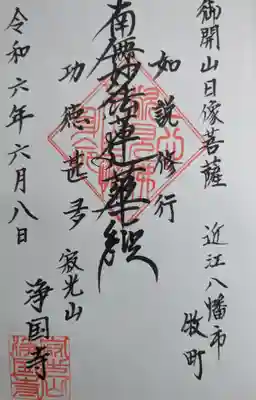 御開山日像菩薩
近江八幡市
牧町
如説修行
南無妙法蓮華経
功徳甚多
寂光山
浄国寺
令和六年六月八日